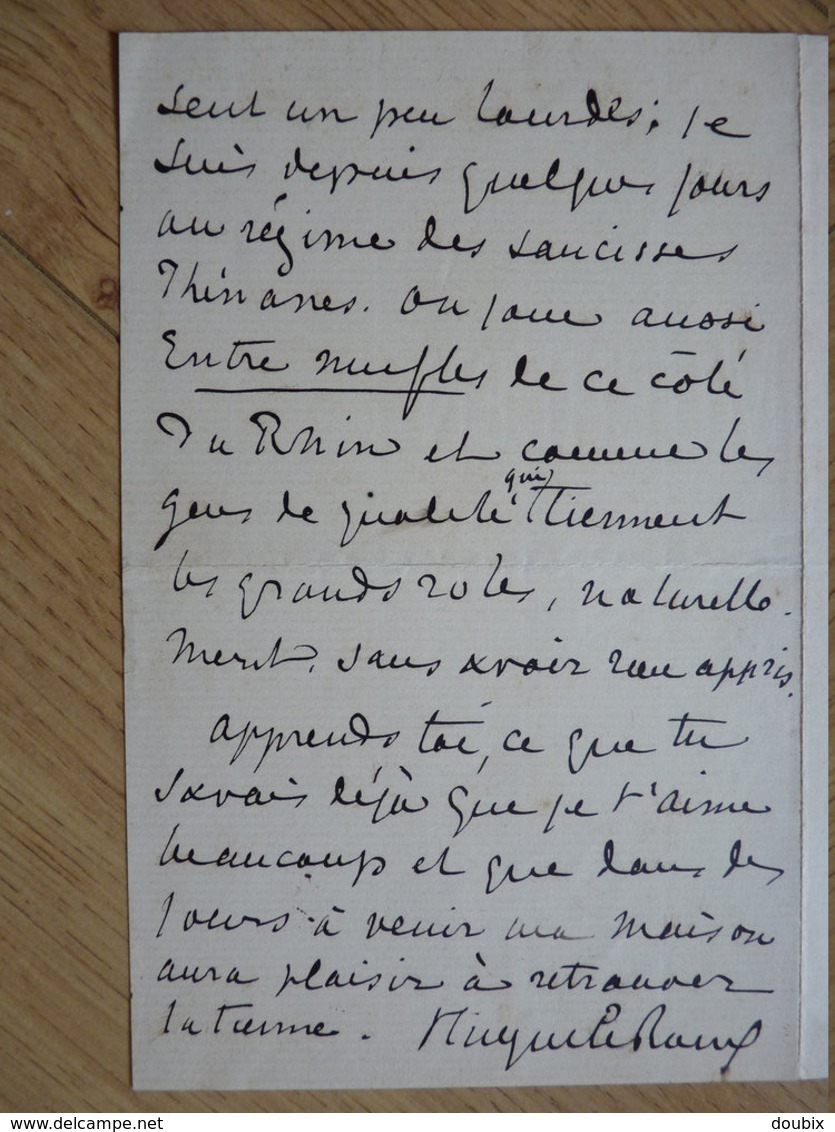 sent un peu lourdes; je
suis depuis quelques jours
au régime des saucisses
Rhénanes. On joue aussi
Entre mufles de ce côté
du Rhin et comme les
gens de qualité qui tiennent
les grands roles, naturelle-
ment, sans avoir rien appris.
apprends toi, ce que tu
savais déjà que je t'aime
beaucoup et que dans des
jours à venir ma maison
aura plaisir à retrouver
la tienne. Hugues Le Roux
https://www.delcampe.net
doubix